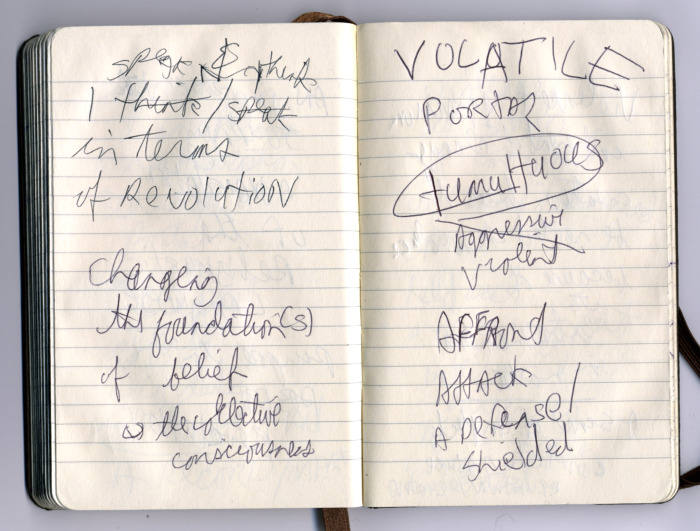 speak & think
I think/speak
in terms
of REVOLUTION
Changing
the foundation(s)
of belief
the collective
consciousness
VOLATILE
PORTAL
tumultuous
Aggressive
Violent
AFFRONT
ATTACK
A DEFENSE/
Shielded